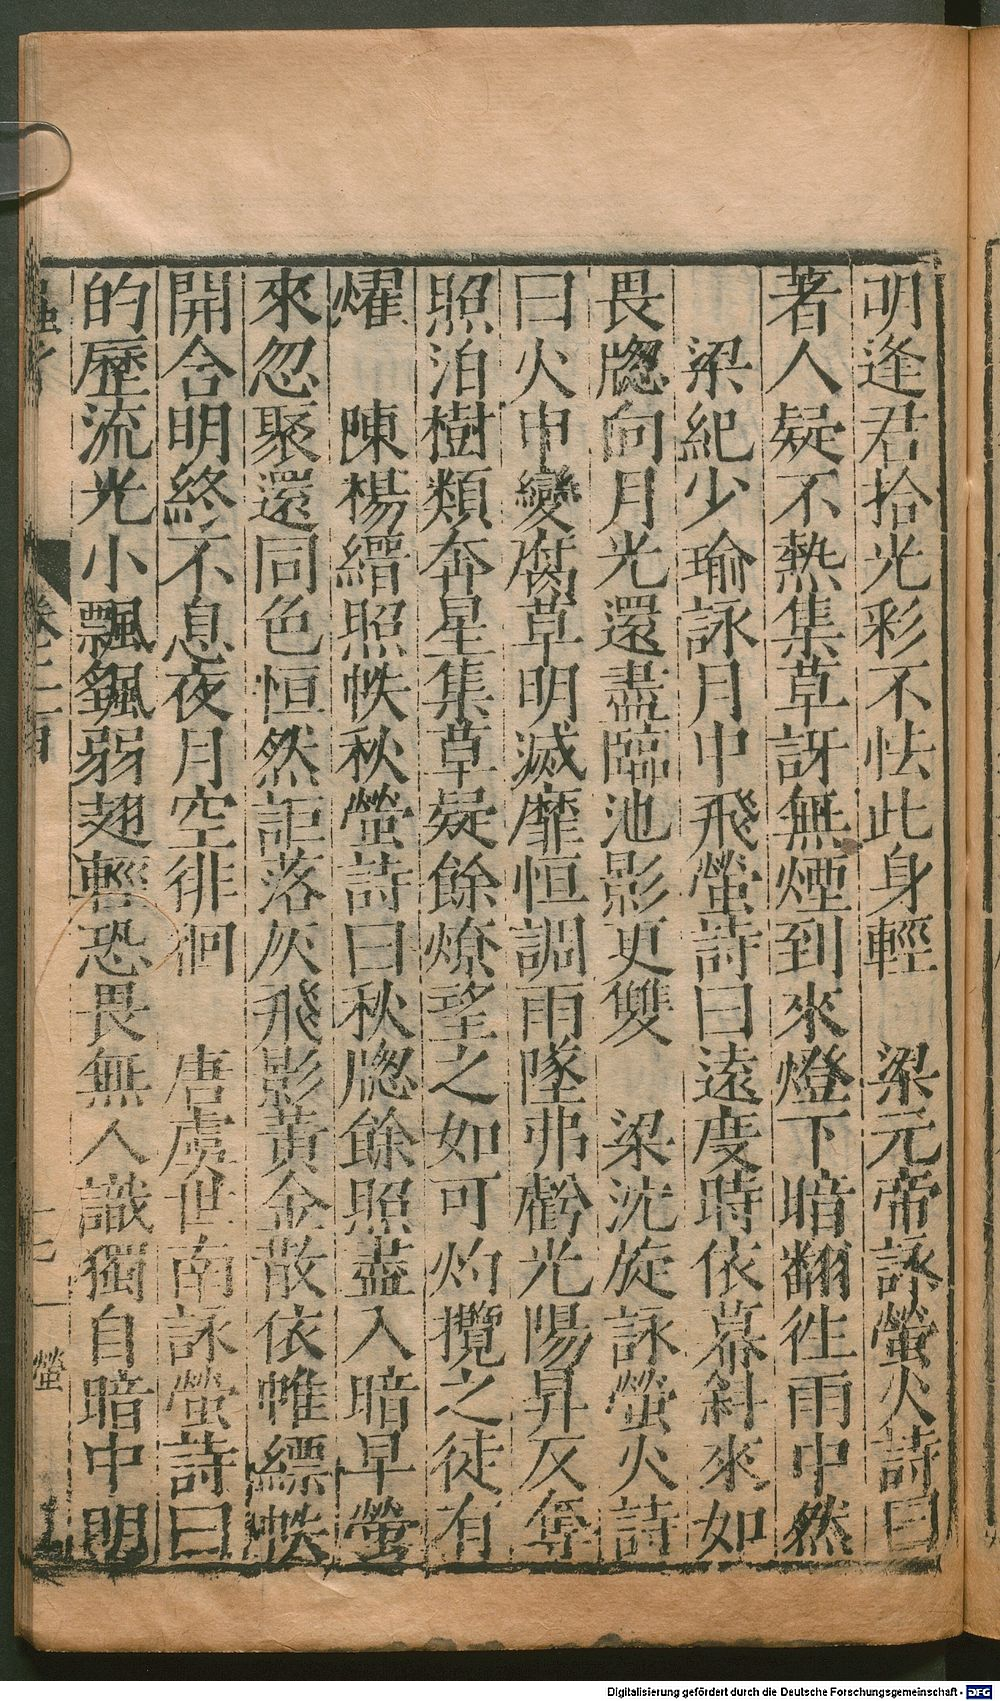 明逢君拾光彩不怯此身輕　梁元帝詠螢火詩曰
著人疑不熱集草訝無煙到來燈下暗翻徃雨中然
梁紀少瑜詠月中飛螢詩曰遠度時依幕斜來如
畏牎向月光還盡臨池影更雙　梁沈旋詠螢火詩
曰火中變腐草明滅靡恒調雨墜弗虧光陽昇反奪
照泊樹類奔星集草疑餘燎望之如可灼攬之徒有
燿　陳楊縉照帙秋螢詩曰秋牎餘照盡入暗早螢
來忽聚還同色恒然詎落灰飛影黃金散依帷縹帙
開含明終不息夜月空徘徊　唐虞世南詠螢詩曰
的歷流光小飄颻弱翅輕恐畏無人識獨自暗中明
蟲
卷二
十七
螢
Digitalisierung gefördert durch die Deutsche Forschungsgemeinschaft - DFG